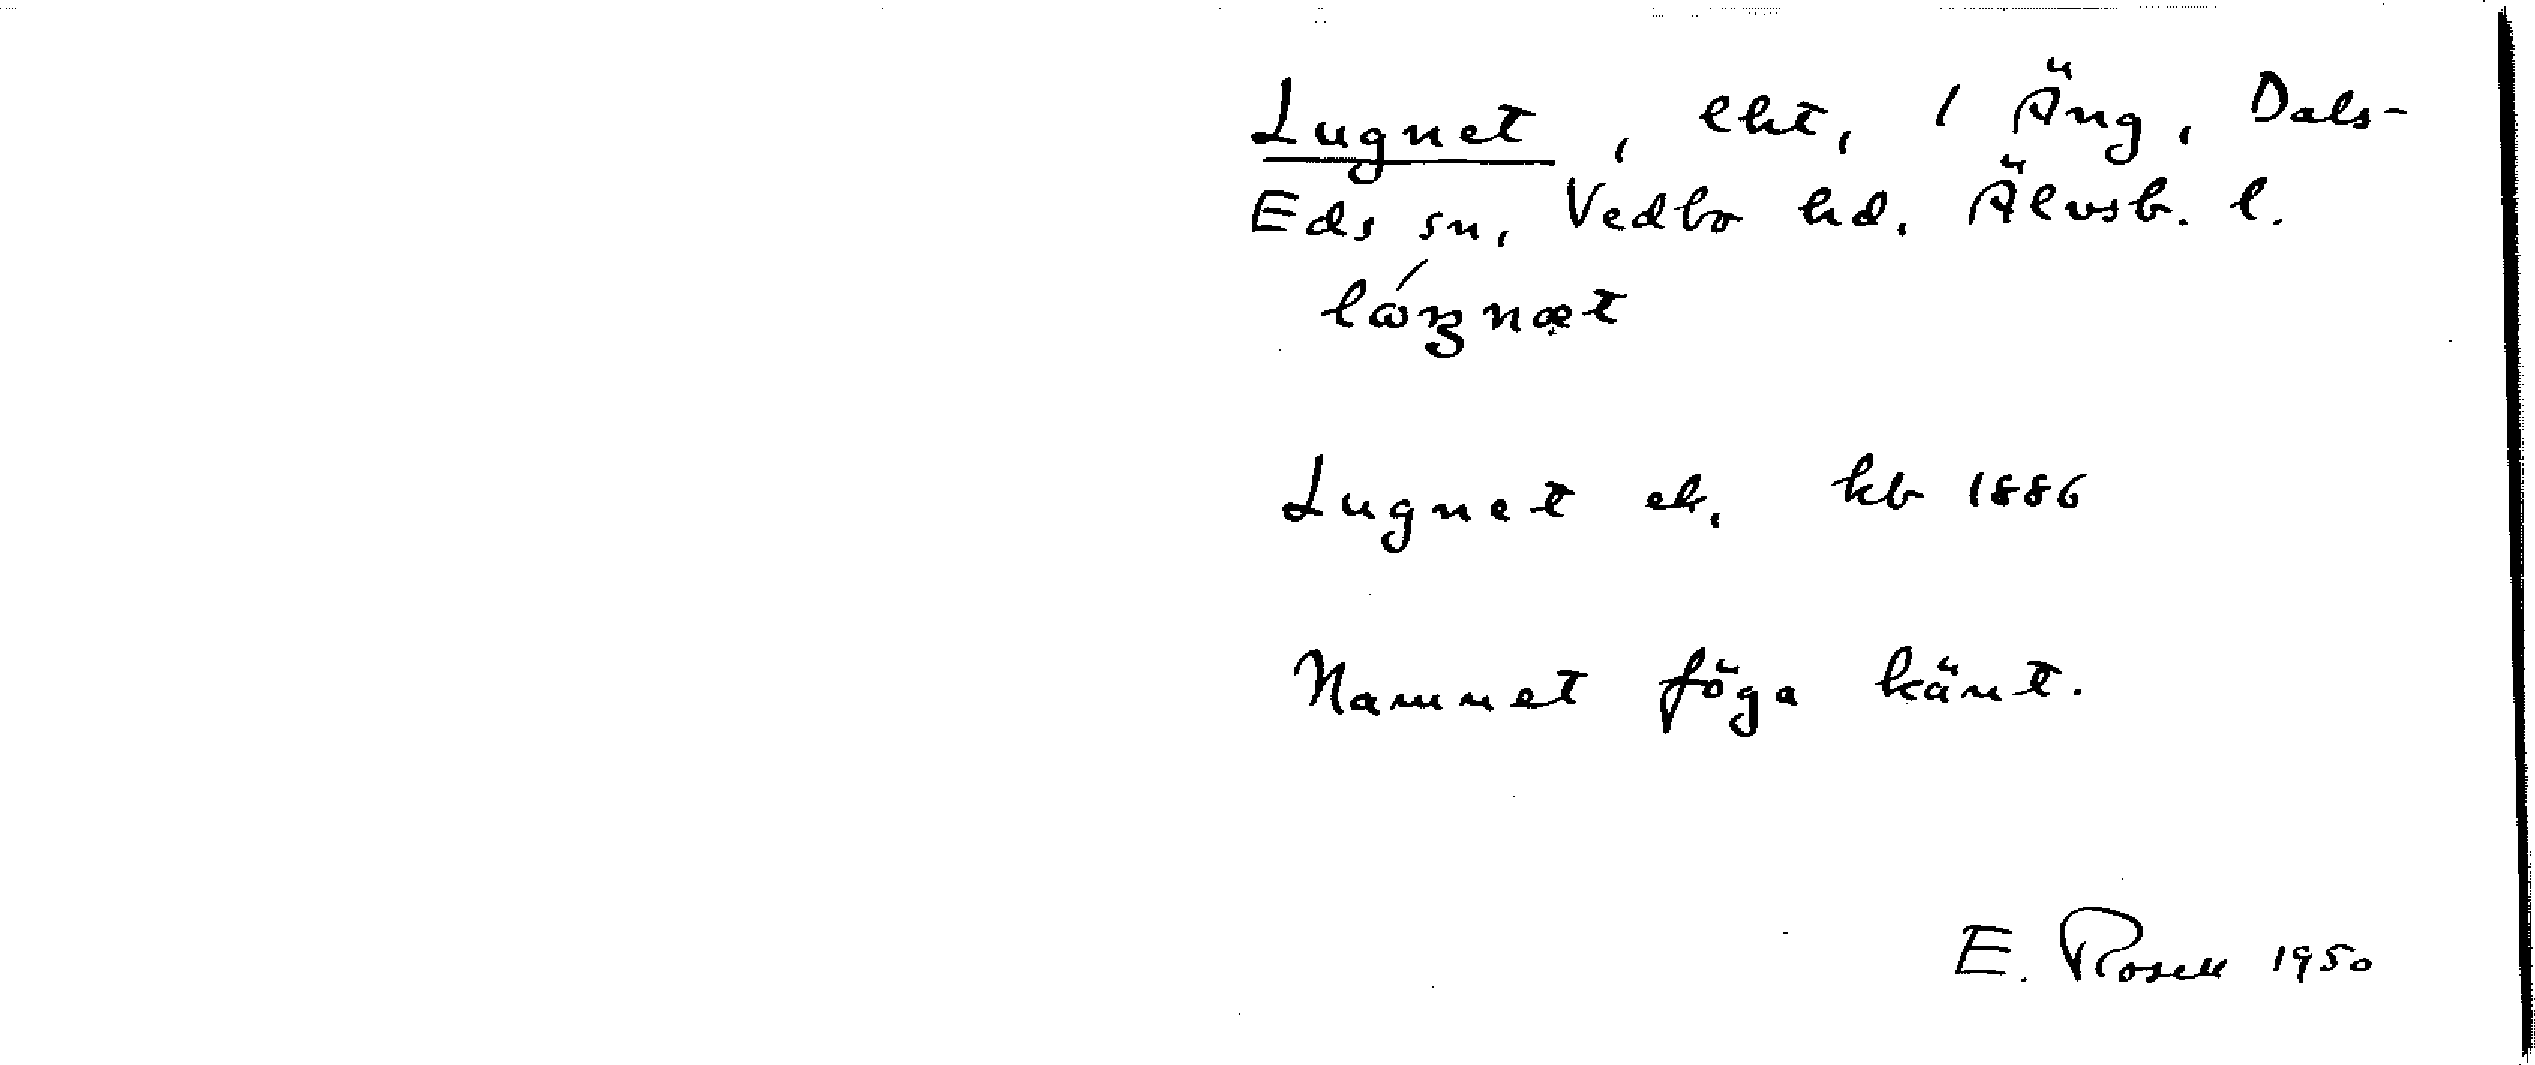 Lugnet, lht, 1 Äng, Dals-
Eds sn, Vedbo hd. Älvsb. l.
lóŋnæt
Lugnet lh. kb 1886
Namnet föga känt.
E. Rosell 1950